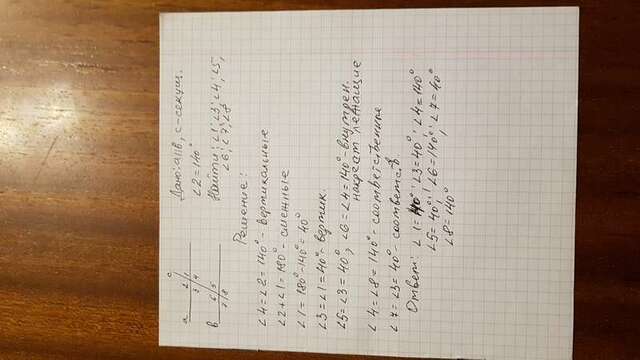 c
a 2/1
3/4
b 6/5
7/8
Дано: a||b, c-секущ.
∠2=140°
Найти: ∠1; ∠3; ∠4; ∠5
∠6; ∠7; ∠8
Решение:
∠4=∠2=140°- вертикальные
∠2+∠1=180°- смежные
∠1=180°-140°=40°
∠3=∠1=40°- вертик.
∠5=∠3=40°; ∠6=∠4=140°- внутрен.
накрест лежащие
∠4=∠8=140°- соответственные
∠7=∠3=40°- соответств
Ответ: ∠1=40°; ∠3=40°; ∠4=140°
∠5=40°; ∠6=140°; ∠7=40°
∠8=140°